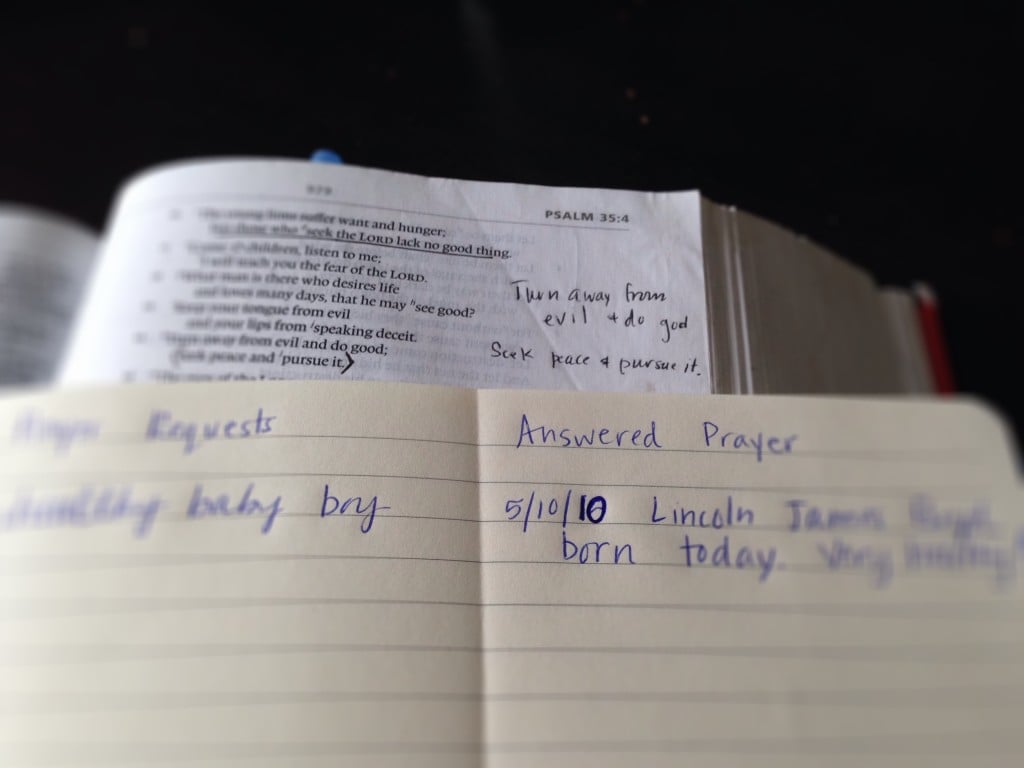 979
PSALM 35:4
suffer want and hunger;
who "seek the LORD lack no good thing.
children, listen to me;
you the fear of the LORD.
is there who desires life
many days, that he may "see good?
your tongue from evil
your lips from speaking deceit.
away from evil and do good;
peace and pursue it.
Turn away from
evil + do god
Seek peace + pursue it.
Requests
healthy baby boy
Answered Prayer
5/10/10 Lincoln James
born today. Very